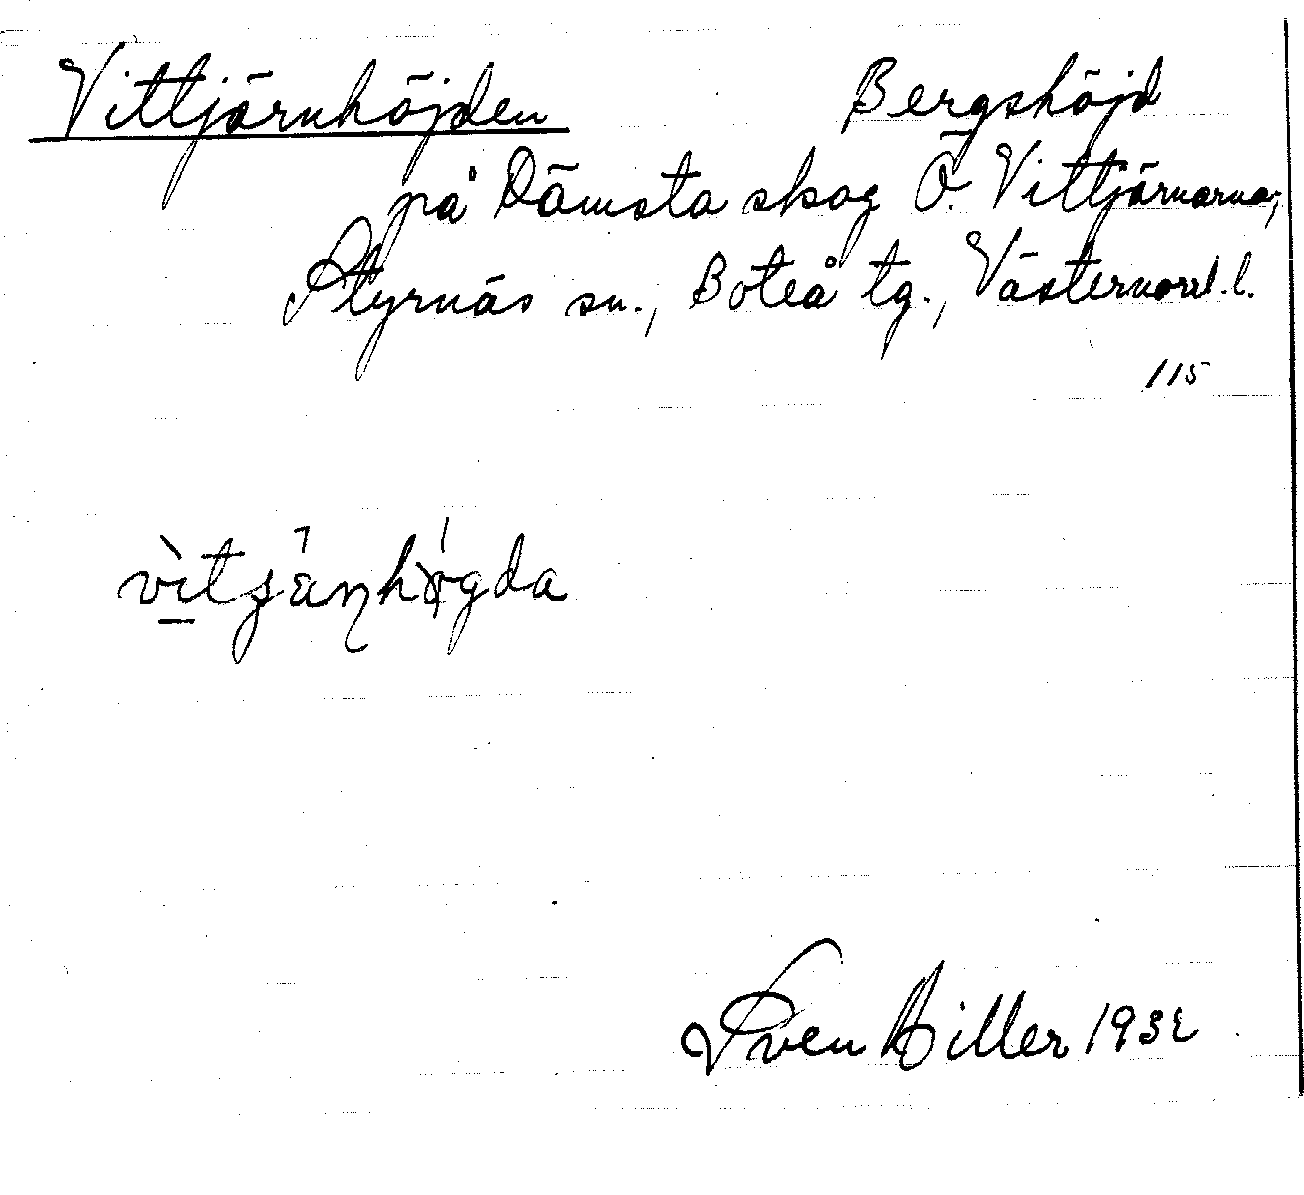 Vittjärnhöjden Bergshöjd
på Dämsta skog Ö. Vittjärnarna,
Styrnäs sn., Boteå tg., Västernorrl. l.
115
Sven Hiller 1932